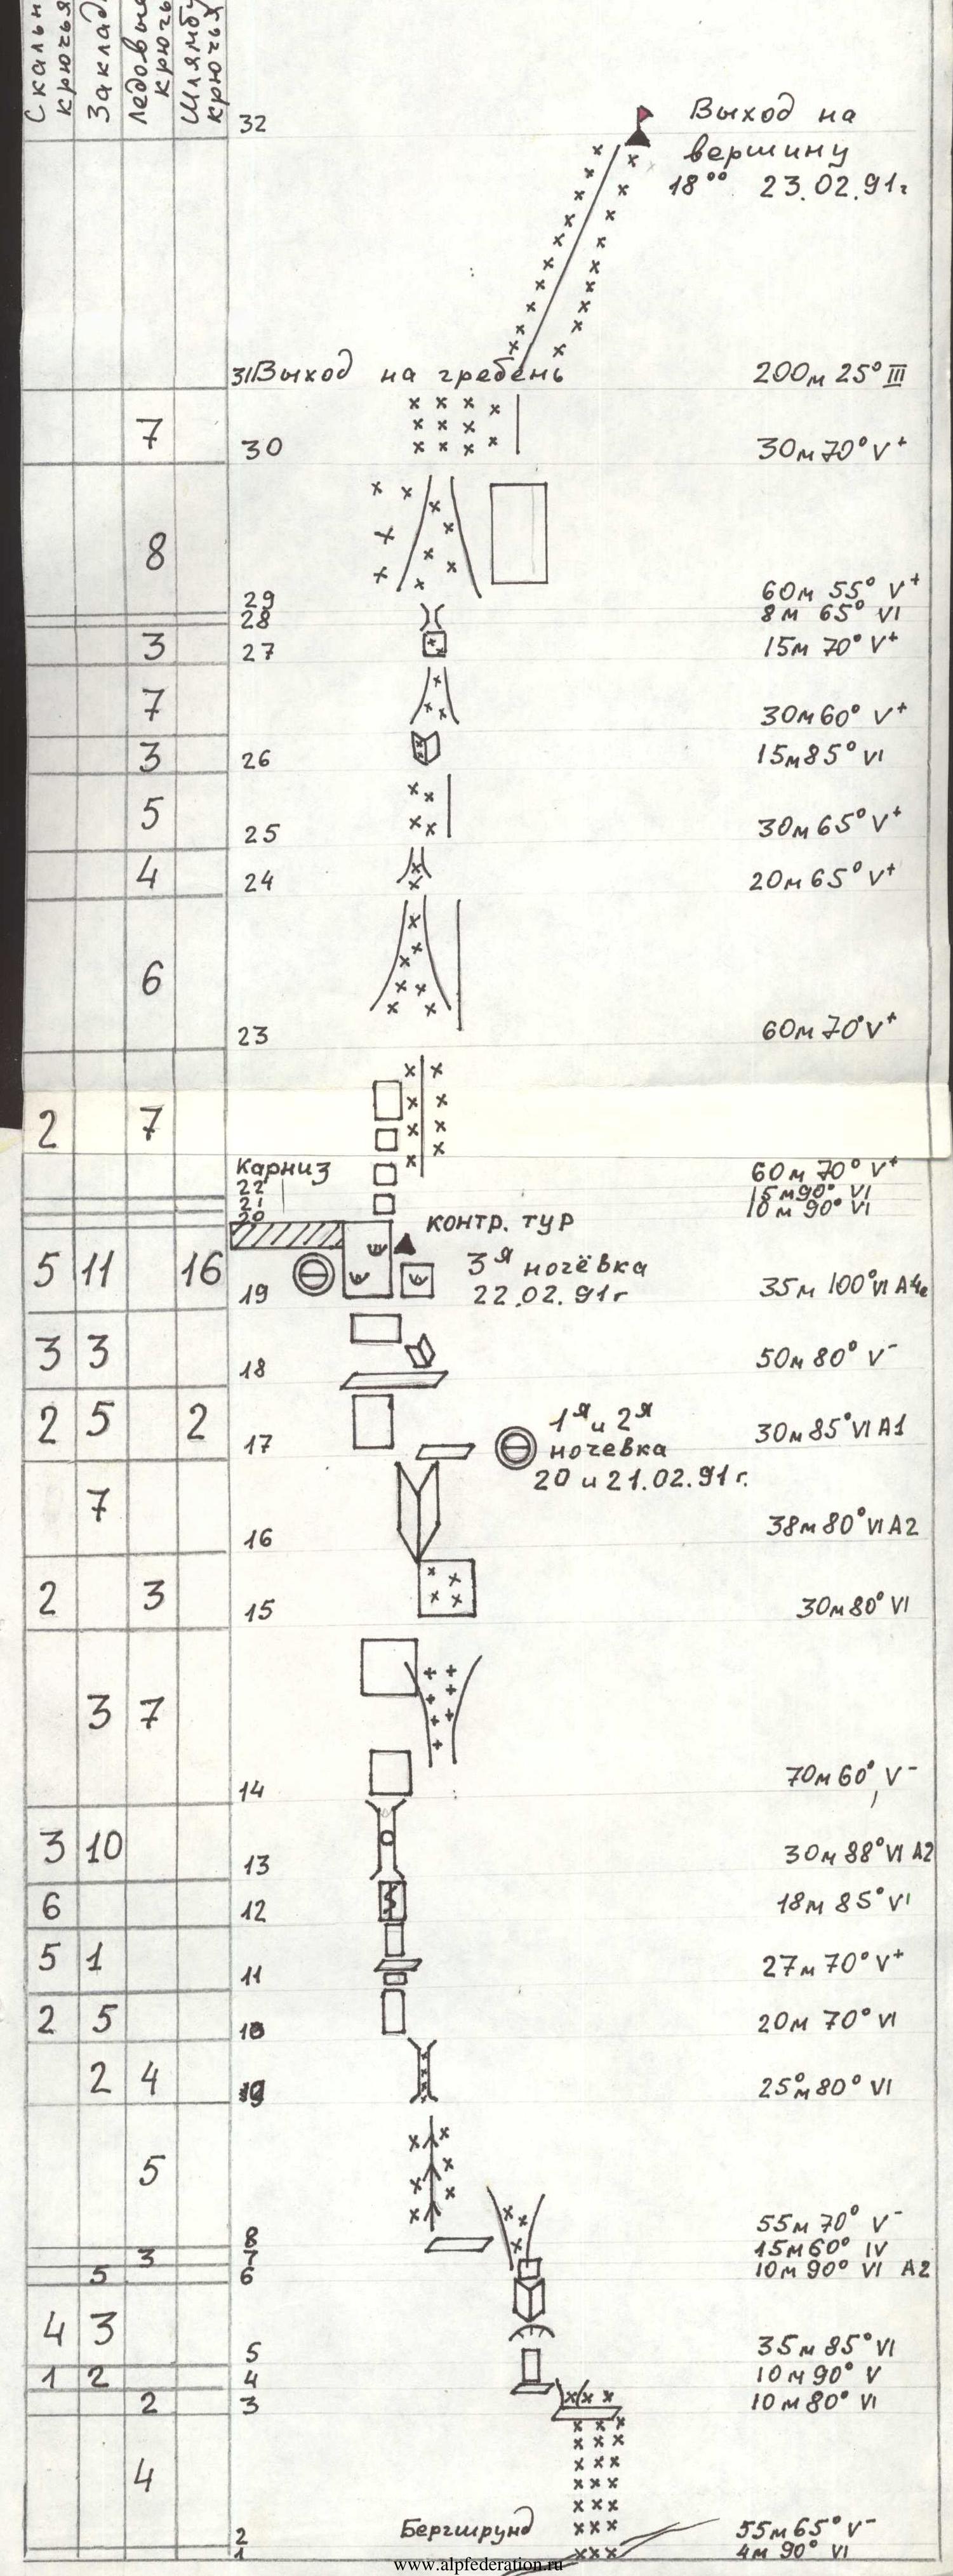 Скальн
крючья
Заклад
Ледовые
крючь
Шлямбу
крючья
32
Выход на
вершину
18°° 23.02.91г
31 Выход на гребень 200м 25° III
7 30 30м 70° V+
8 29 60м 55° V+
28 8м 65° VI
3 27 15м 70° V+
7 30м 60° V+
3 26 15м 85° VI
5 25 30м 65° V+
4 24 20м 65° V+
6 23 60м 70° V+
2 7
Карниз 60м 70° V+
22 15м 90° VI
21 10м 90° VI
20
контр. тур
3я ночёвка
22.02.91г
5 11 16 19 35м 100° VI
3 3 18 50м 80° V-
1я и 2я
ночевка
20 и 21.02.91г.
2 5 2 17 30м 85° VI A1
7 16 38м 80° VI A2
2 3 15 30м 80° VI
3 7 14 70м 60° V-
3 10 13 30м 88° VI A2
6 12 18м 85° VI
5 1 11 27м 70° V+
2 5 10 20м 70° VI
2 4 25м 80° VI
5 8 55м 70° V-
3 7 15м 60° IV
5 6 10м 90° VI A2
4 3 5 35м 85° VI
1 2 4 10м 90° V
2 3 10м 80° VI
4
Бергшрунд
2 55м 65° V-
1 4м 90° VI
www.alpfederation.ru